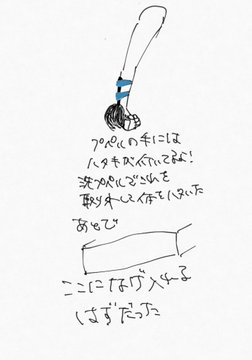 プペルの手には
ハタキが付いてるよ!
洗プペルでこれを
取り外して体をハタいた
あとで
ここになげ入れる
はずだった